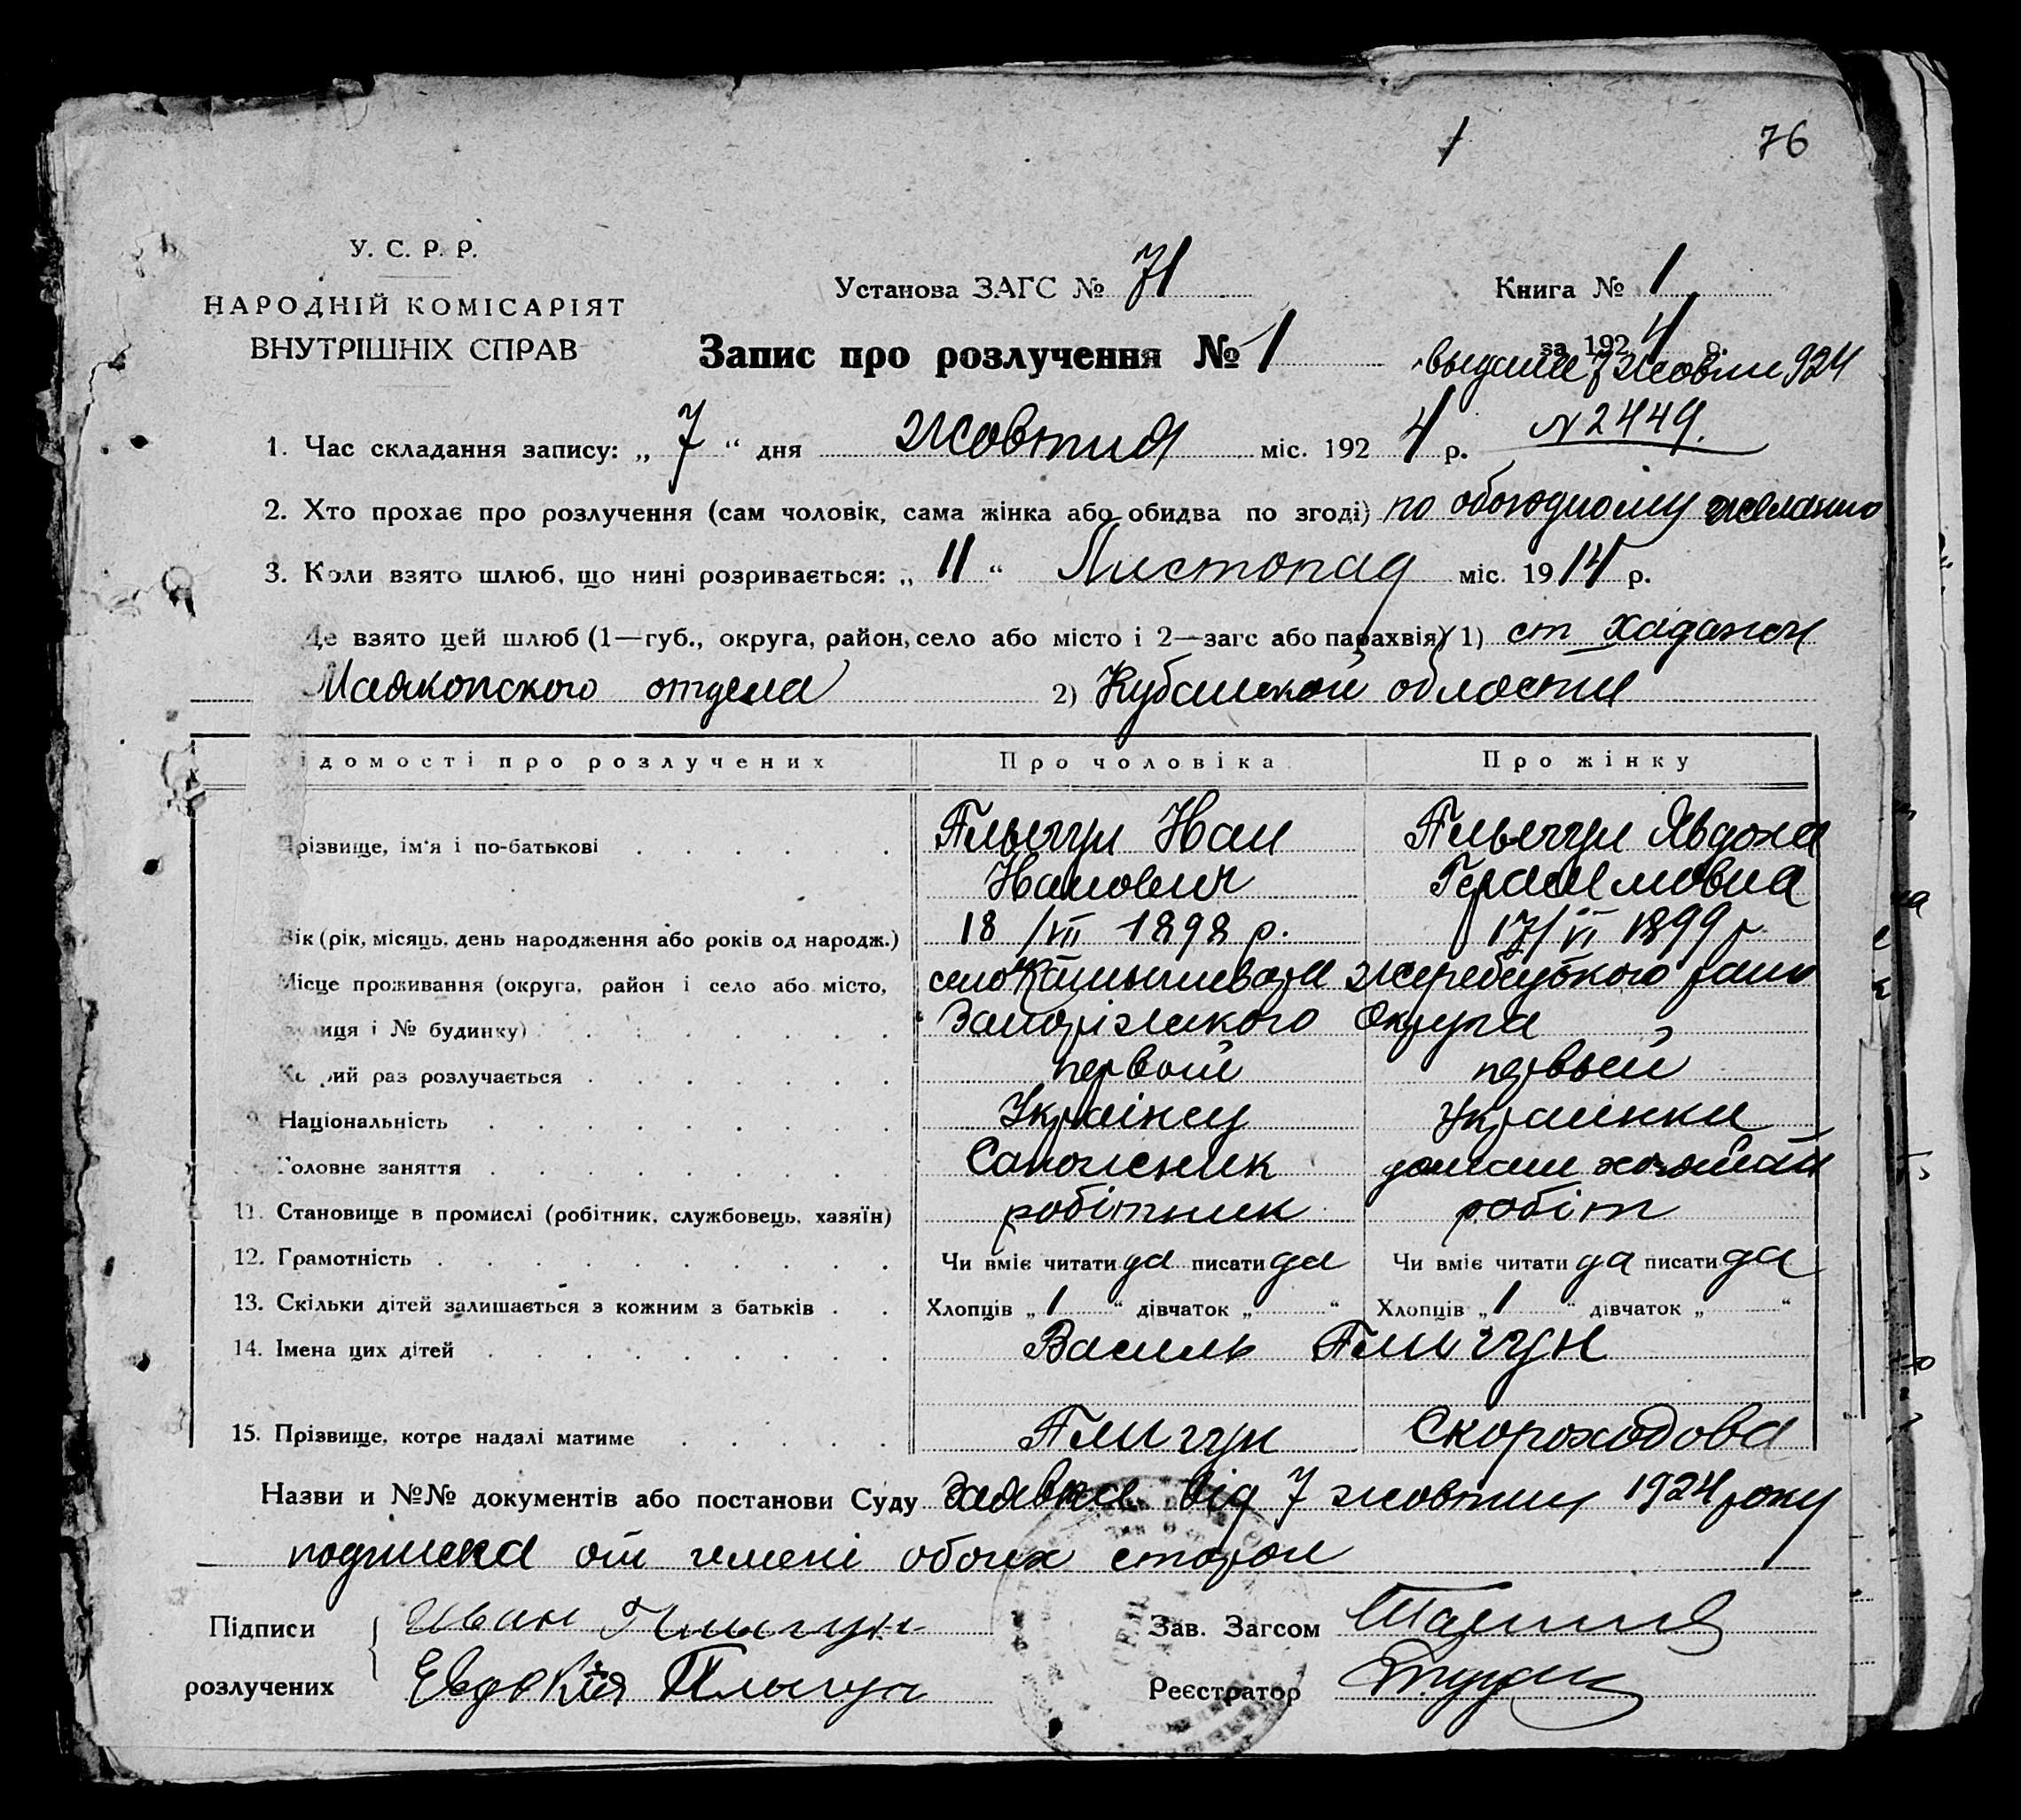 1 76
У. С. Р. Р.
НАРОДНІЙ КОМІСАРІЯТ
ВНУТРІШНІХ СПРАВ
Установа ЗАГС № 71
Книга № 1
за 1924 р.
Запис про розлучення № 1
7 924
N 2449.
1. Час складання запису: „ 7 “ дня жовтня міс. 1924 р.
2. Хто прохає про розлучення (сам чоловік, сама жінка або обидва по згоді) по обоюдному желанию
3. Коли взято шлюб, що нині розривається: „ 11 “ Листопад міс. 1914 р.
Де взято цей шлюб (1—губ., округа, район, село або місто і 2—загс або парахвія) 1) ст
Маякопского отдела 2) Кубанской области
ідомості про розлучених Про чоловіка Про жінку
Прізвище, ім‘я і по-батькові Плыгун Иван Плыгун Явдоха
Иванович Герасимовна
Вік (рік, місяць, день народження або років од народж.) 18/VII 1898 р. 17/VI 1899 р
Місце проживання (округа, район і село або місто, село Жеребецького
улиця і № будинку) Запоріжского Округа
Котрий раз розлучається первый первый
9. Національність Українец Украинка
Головне заняття Сапожник
11. Становище в промислі (робітник, службовець, хазяїн) робітник робіт
12. Грамотність Чи вміє читати да писати да Чи вміє читати да писати да
13. Скільки дітей залишається з кожним з батьків Хлопців „ 1 “ дівчаток „ “ Хлопців „ 1 “ дівчаток „ “
14. Імена цих дітей Василь Плигун
15. Прізвище, котре надалі матиме Плигун Скороходова
Назви и №№ документів або постанови Суду від 7 жовтня 1924 року
подписка от имені обоих сторон
Підписи Иван Плыгун Зав. Загсом
розлучених Евдокия Плыгун Реєстратор